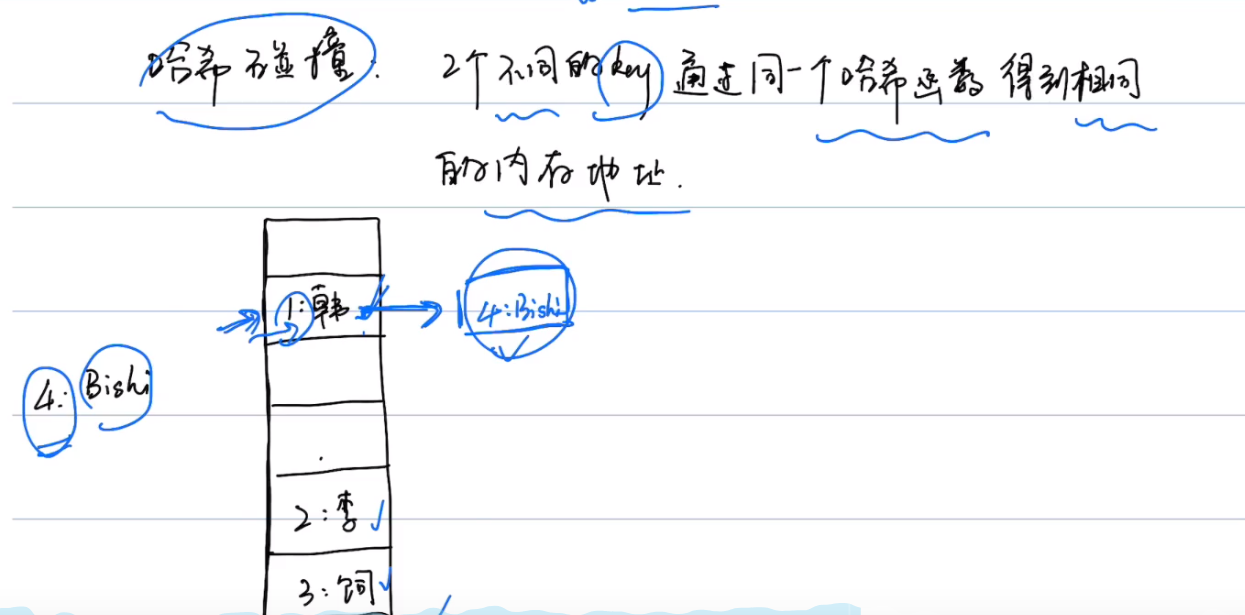 哈希碰撞: 2个不同的key通过同一个哈希函数得到相同
的内存地址.
1:韩
4:Bishi
4:Bishi
2:李
3:饲